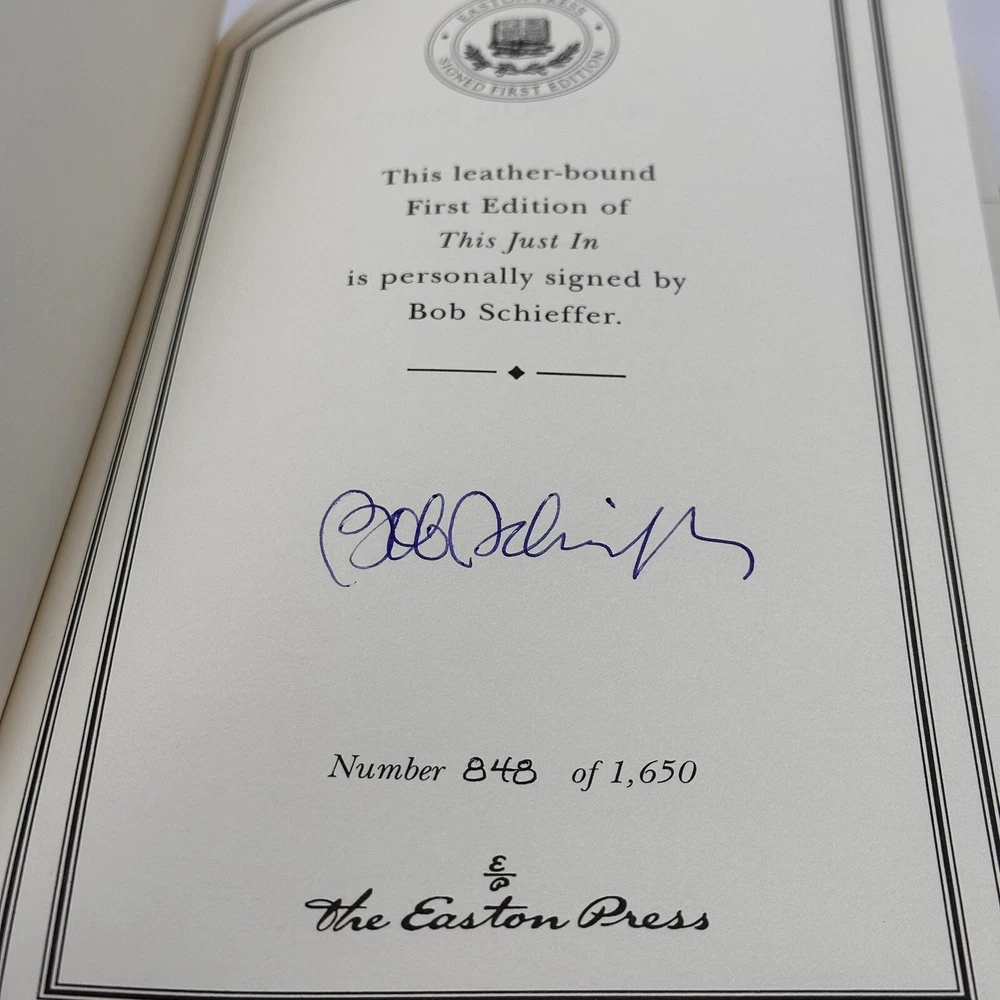 EASTON PRESS
SIGNED FIRST EDITION
This leather-bound
First Edition of
This Just In
is personally signed by
Bob Schieffer.
Bob Schieffer
Number 848 of 1,650
EP
The Easton Press